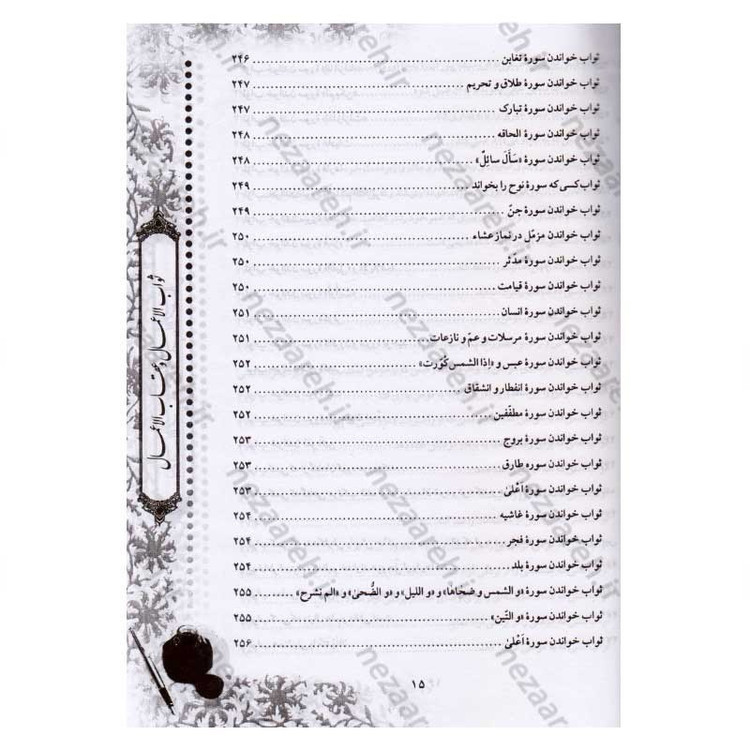 ثواب خواندن سورۀ تغابن ........ ۲۴۶
ثواب خواندن سورۀ طلاق و تحریم ........ ۲۴۷
ثواب خواندن سورۀ تبارک ........ ۲۴۷
ثواب خواندن سورۀ الحاقه ........ ۲۴۸
ثواب خواندن سورۀ «سَأَلَ سائِلٌ» ........ ۲۴۸
ثواب کسی که سورۀ نوح را بخواند ........ ۲۴۹
ثواب خواندن سورۀ جنّ ........ ۲۴۹
ثواب خواندن مزمّل در نماز عشاء ........ ۲۵۰
ثواب خواندن سورۀ مدّثر ........ ۲۵۰
ثواب خواندن سورۀ قیامت ........ ۲۵۰
ثواب خواندن سورۀ انسان ........ ۲۵۱
ثواب خواندن سورۀ مرسلات و عمّ و نازعات ........ ۲۵۱
ثواب خواندن سورۀ عبس و «إذا الشمس کُوّرت» ........ ۲۵۲
ثواب خواندن سورۀ انفطار و انشقاق ........ ۲۵۲
ثواب خواندن سورۀ مطفّفین ........ ۲۵۲
ثواب خواندن سورۀ بروج ........ ۲۵۳
ثواب خواندن سوره طارق ........ ۲۵۳
ثواب خواندن سورۀ أعْلیٰ ........ ۲۵۳
ثواب خواندن سورۀ غاشیه ........ ۲۵۴
ثواب خواندن سورۀ فجر ........ ۲۵۴
ثواب خواندن سورۀ بلد ........ ۲۵۴
ثواب خواندن سورۀ «و الشمس و ضحاها» و «و اللیل» و «و الضُّحیٰ» و «الم نشرح» ........ ۲۵۵
ثواب خواندن سورۀ «و التّین» ........ ۲۵۵
ثواب خواندن سورۀ أعْلیٰ ........ ۲۵۶
۱۵
ثواب الاعمال و عقاب الاعمال
nezaareh.ir